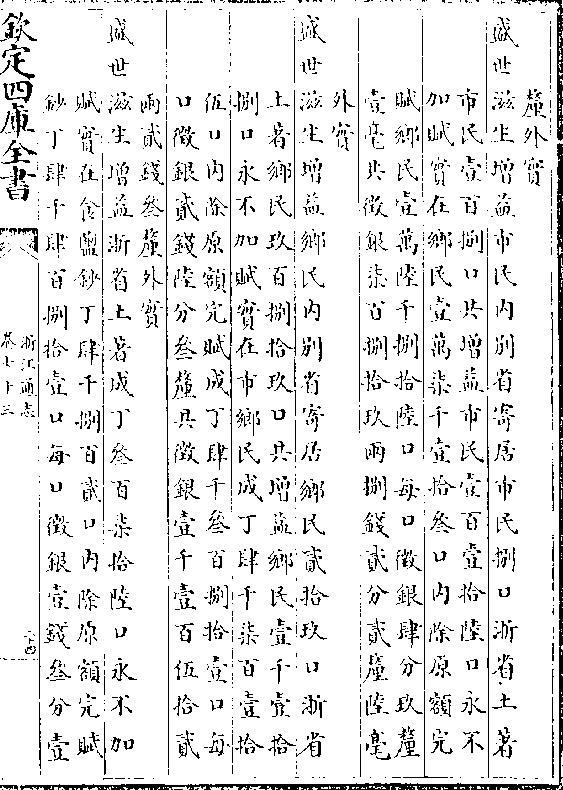 釐外實
盛世滋生增益市民内别省寄居市民捌口浙省土著
市民壹百捌口共增益市民壹百壹拾陸口永不
加賦實在鄉民壹萬柒千壹拾叁口内除原額完
賦鄉民壹萬陸千捌拾陸口每口徵銀肆分玖釐
壹毫共徵銀柒百捌拾玖兩捌錢貳分貳釐陸毫
外實
盛世滋生增益鄉民内别省寄居鄉民貳拾玖口浙省
土著鄉民玖百捌拾玖口共增益鄉民壹千壹拾
捌口永不加賦實在市鄉民成丁肆千柒百壹拾
伍口内除原額完賦成丁肆千叁百捌拾壹口每
口徵銀貳錢陸分叁釐共徵銀壹千壹百伍拾貳
兩貳錢叁釐外實
盛世滋生增益浙省土著成丁叁百柒拾陸口永不加
賦實在食鹽鈔丁肆千捌百貳口内除原額完賦
鈔丁肆千肆百捌拾壹口每口徵銀壹錢叁分壹
欽定四庫全書
浙江通志
卷七十三
二十四